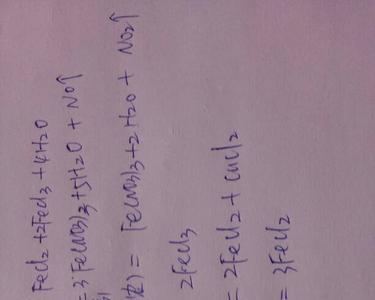 FeCl₂ + 2FeCl₃ + 4H₂O
= 3Fe(NO₃)₃ + 5H₂O + NO↑
) = Fe(NO₃)₃ + 2H₂O + NO₂↑
2FeCl₃
= 2FeCl₂ + CuCl₂
= 3FeCl₂